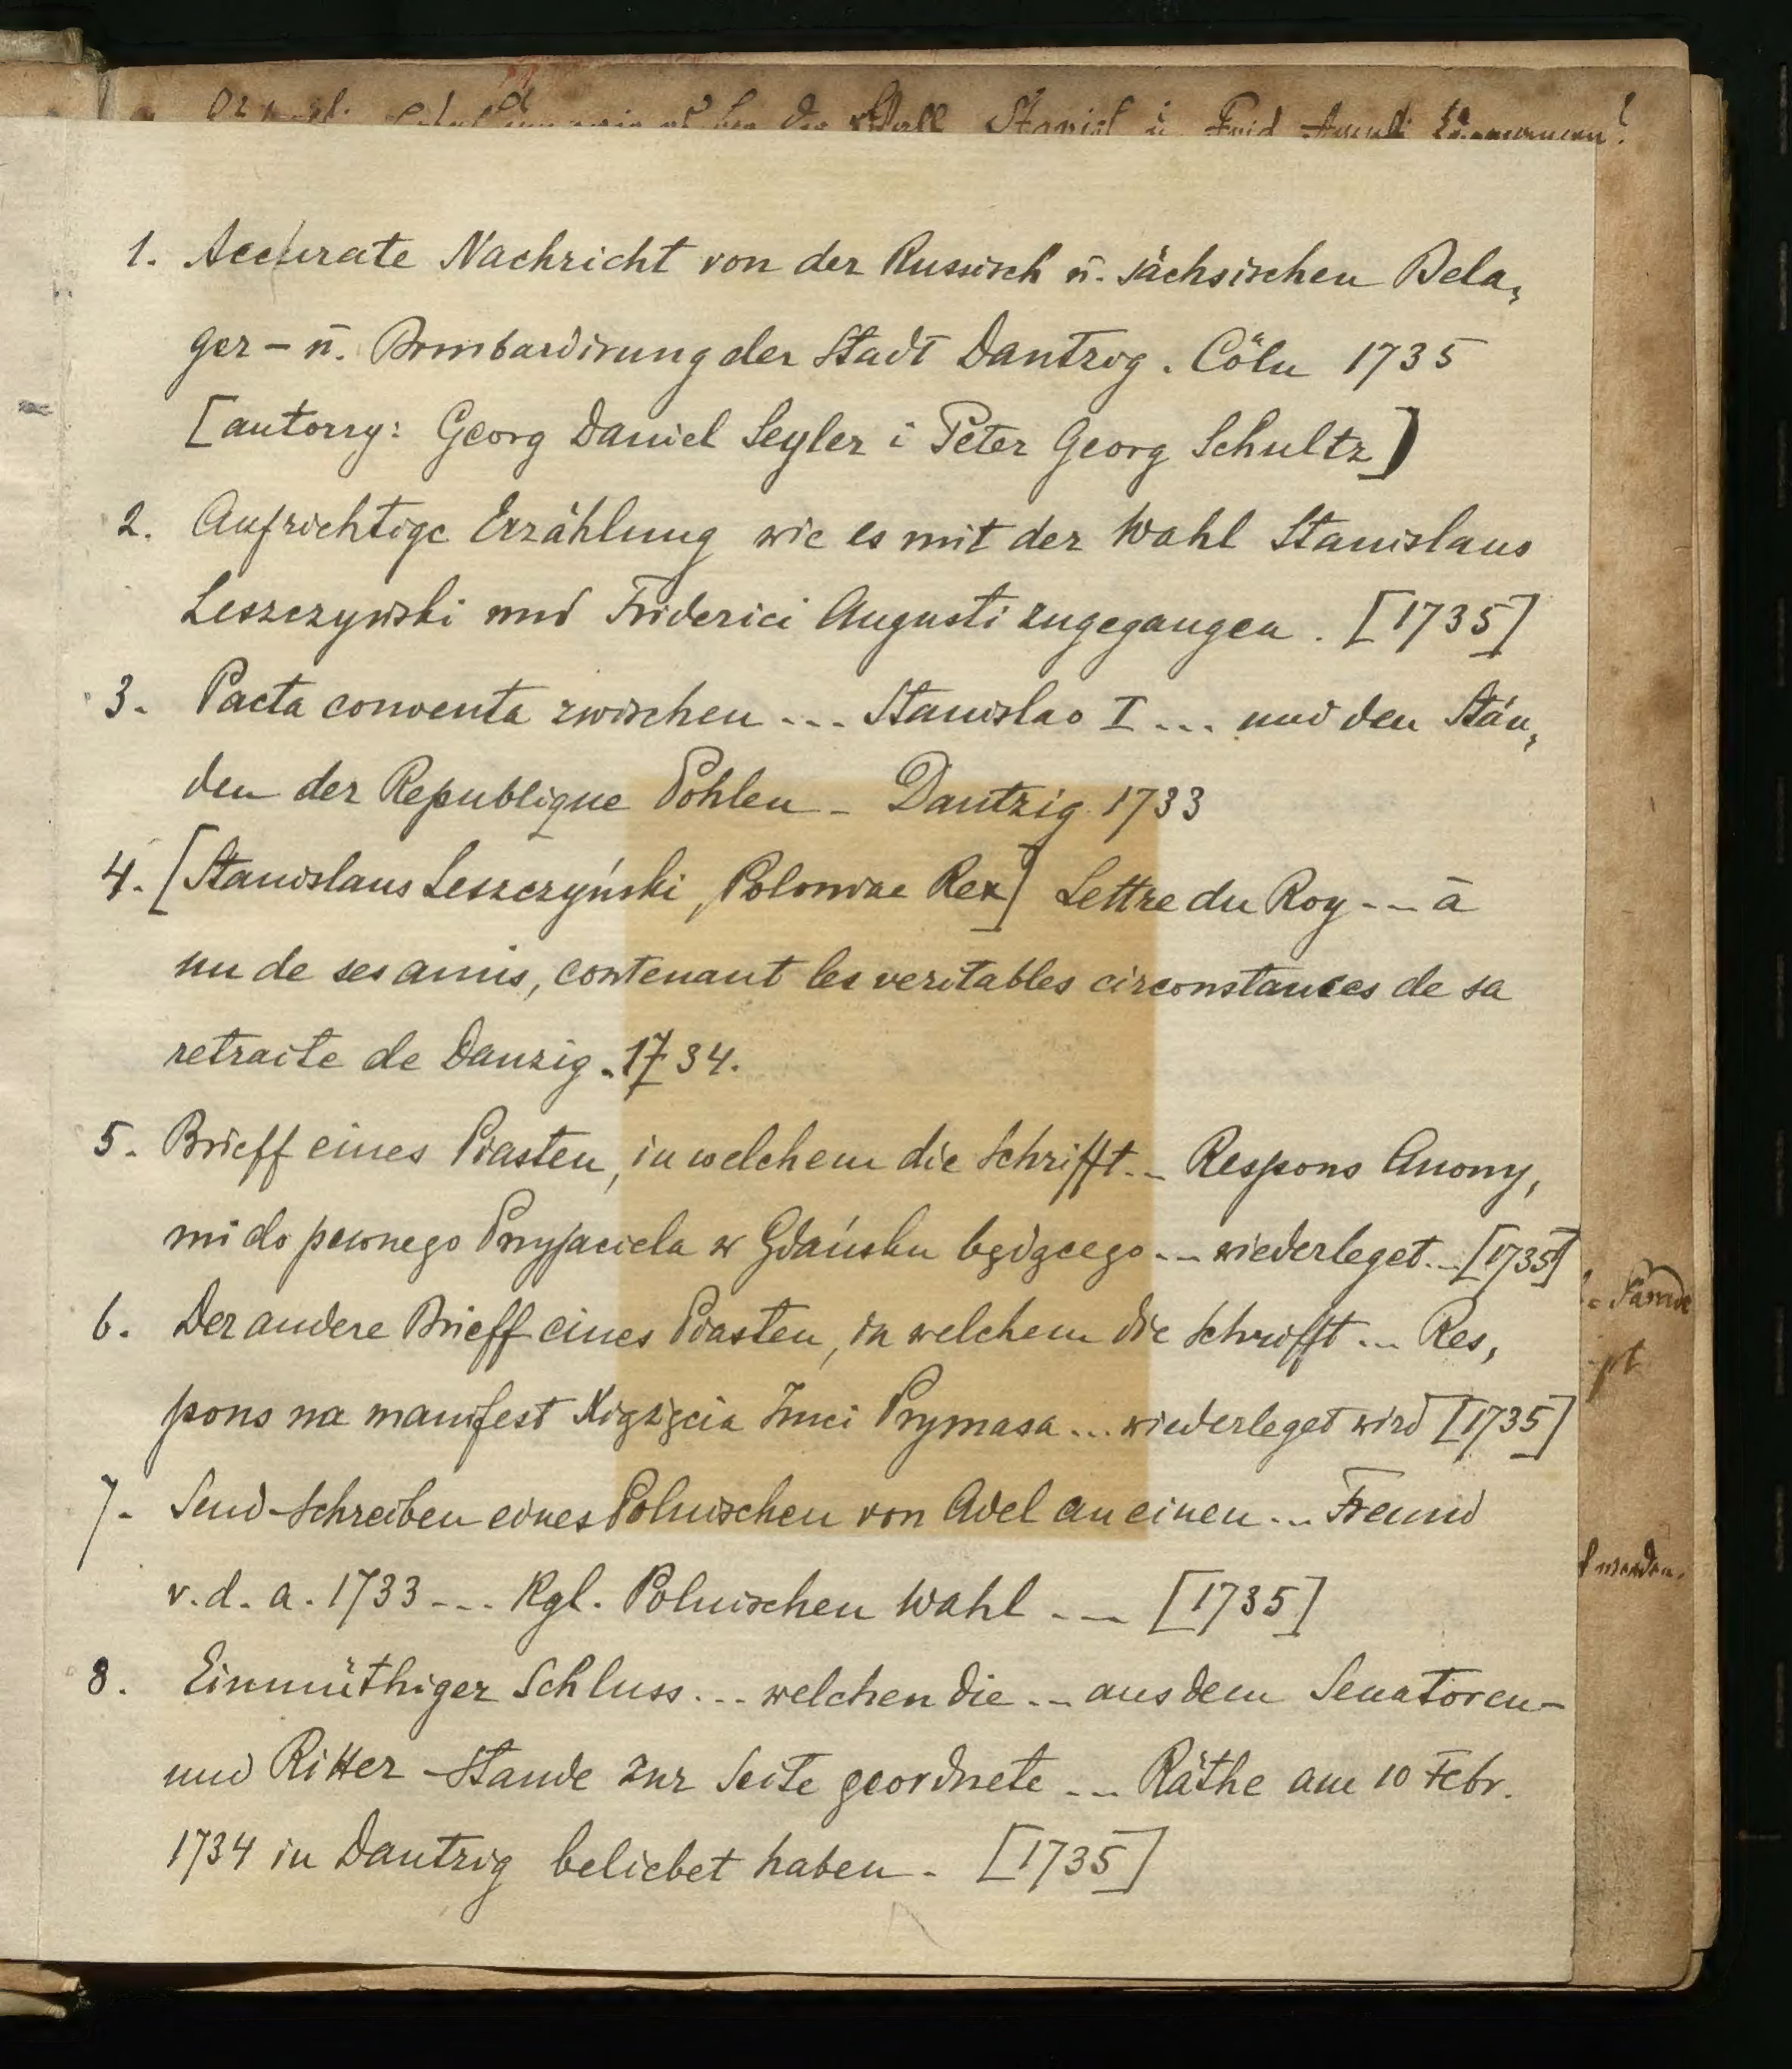 der Wahl Stanisl u. Frid
1. Accurate Nachricht von der Russisch u. sächsischen Bela,
ger – u. Bombardirung der Stadt Dantzig. Cöln 1735
[autorzy: Georg Daniel Seyler i Peter Georg Schultz]
2. Aufrichtige Erzählung wie es mit der Wahl Stanislaus
Leszczynski und Friderici Augusti zugegangen. [1735]
3. Pacta conventa zwischen ... Stanislao I ... und den Stän,
den der Republique Pohlen – Dantzig 1733
4. [Stanislaus Leszczyński, Poloniae Rex] Lettre du Roy --- à
un de ses amis, contenant les veritables circonstances de sa
retraite de Danzig. 1734.
5. Brieff eines Piasten, in welchem die Schrifft... Respons Anony,
mi do pewnego Przyjaciela w Gdańsku będącego --- wiederleget... [1735]
6. Der andere Brieff eines Piasten, in welchem die Schrifft ... Res,
pons na manifest Xiążęcia Jmci Prymasa ... wiederleget wird [1735]
7. Send-Schreiben eines Polnischen von Adel an einen ... Freund
v. d. a. 1733 --- Kgl. Polnischen Wahl --- [1735]
8. Einmüthiger Schluss ... welchen die ... aus dem Senatoren-
und Ritter-Stande zur Seite geordnete ... Räthe am 10 Febr.
1734 in Dantzig beliebet haben. [1735]